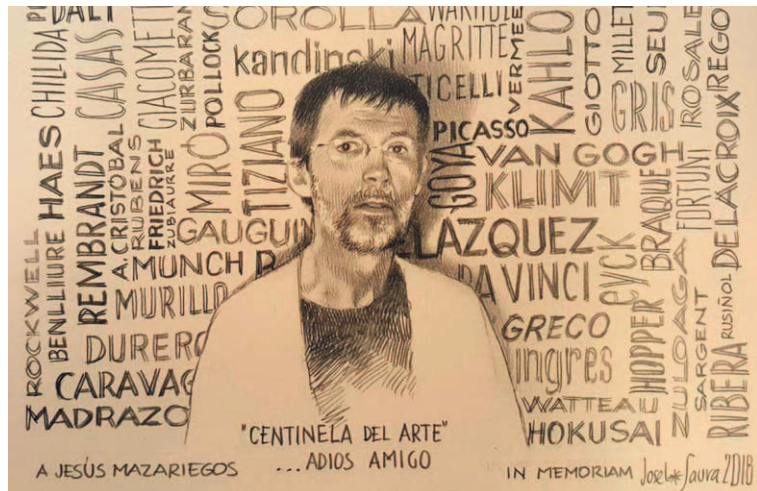 DALÍ
SOROLLA
WARHOL
CHILLIDA
CASAS
GIACOMETTI
ZURBARAN
POLLOCK
kandinski
MAGRITTE
TICELLI
VERMEE
KAHLO
GIOTTO
MILLET
SEU
ROSALE
REGO
GRIS
PICASSO
MIRÓ
TIZIANO
GOYA
VAN GOGH
KLIMT
HAES
REMBRANDT
A. CRISTÓBAL
RUBENS
FRIEDRICH
ZUBIAURRE
GAUGUIN
LAZQUEZ
BRAQUE
FORTUNI
DELACROIX
ROCKWELL
BENLLIURE
MUNCH
MURILLO
DA VINCI
EYCK
HOPPER
ZULOAGA
SARGENT
RUSIÑOL
RIBERA
DURERO
GRECO
ingres
CARAVAG
WATTEAU
MADRAZO
HOKUSAI
"CENTINELA DEL ARTE"
...ADIOS AMIGO
A JESÚS MAZARIEGOS
IN MEMORIAM Josel*Saura 2018